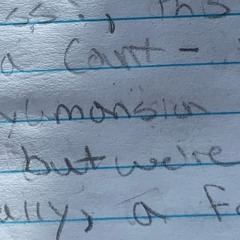 ss., This
a Can't -
y mansion
but we're
ally, a f